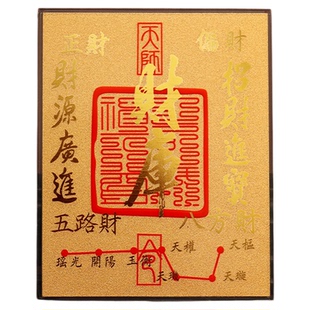 天師
正財
偏財
財源廣進
財庫
招財進寶
五路財
八方財
令
天權
天樞
瑶光
開陽
玉衡